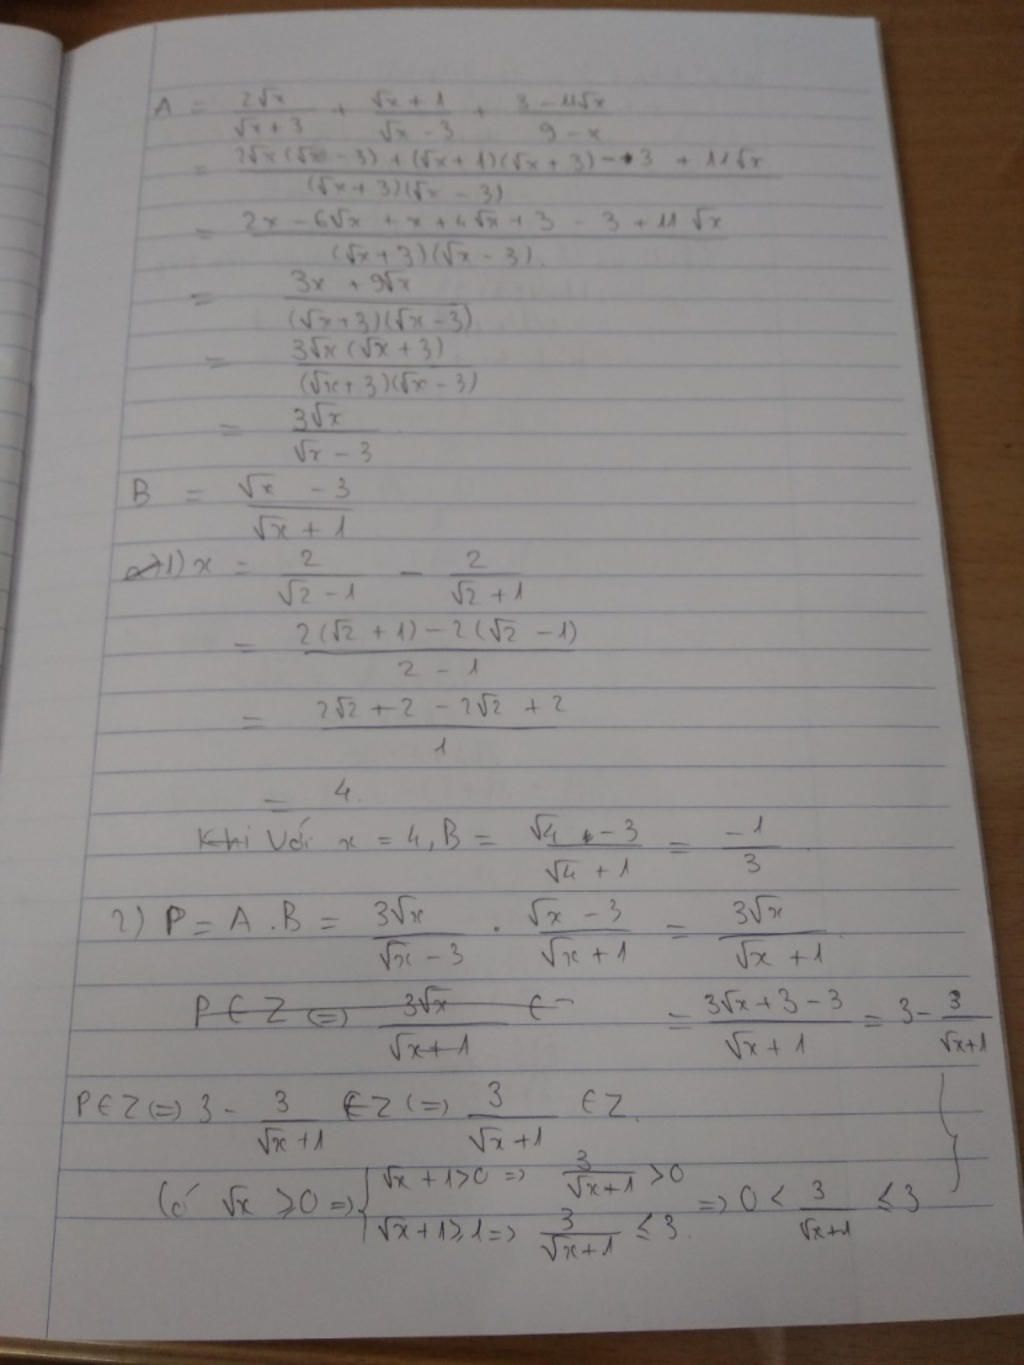 A = 2√x/(√x + 3) + (√x + 1)/(√x - 3) + (3 - 11√x)/(9 - x)
= (2√x(√x - 3) + (√x + 1)(√x + 3) - 3 + 11√x)/((√x + 3)(√x - 3))
= (2x - 6√x + x + 4√x + 3 - 3 + 11√x)/((√x + 3)(√x - 3))
= (3x + 9√x)/((√x + 3)(√x - 3))
= (3√x(√x + 3))/((√x + 3)(√x - 3))
= 3√x/(√x - 3)
B = (√x - 3)/(√x + 1)
1) x = 2/(√2 - 1) - 2/(√2 + 1)
= (2(√2 + 1) - 2(√2 - 1))/(2 - 1)
= (2√2 + 2 - 2√2 + 2)/1
= 4.
Khi Với x = 4, B = (√4 - 3)/(√4 + 1) = -1/3
2) P = A . B = 3√x/(√x - 3) . (√x - 3)/(√x + 1) = 3√x/(√x + 1)
P ∈ Z (=) 3√x/(√x + 1) ∈ = (3√x + 3 - 3)/(√x + 1) = 3 - 3/(√x + 1)
P ∈ Z (=) 3 - 3/(√x + 1) ∈ Z (=) 3/(√x + 1) ∈ Z.
Có √x ≥ 0 => { √x + 1 > 0 => 3/(√x + 1) > 0
√x + 1 ≥ 1 => 3/(√x + 1) ≤ 3. => 0 < 3/(√x + 1) ≤ 3 }